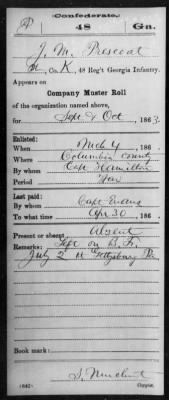 Confederate.
P 48 Ga.
J. M. Prescoat
Co. K, 48 Reg't Georgia Infantry.
Appears on
Company Muster Roll
of the organization named above,
for Sept & Oct, 1863.
Enlisted:
When Mch 4, 186
Where Columbia County
By whom Capt Hamilton
Period War
Last paid:
By whom Capt Evans
To what time Apr 30, 186
Present or absent Absent
Remarks: Left on B. F.
July 2d at Gettysburg Pa
Book mark:
(642)
Copyist.